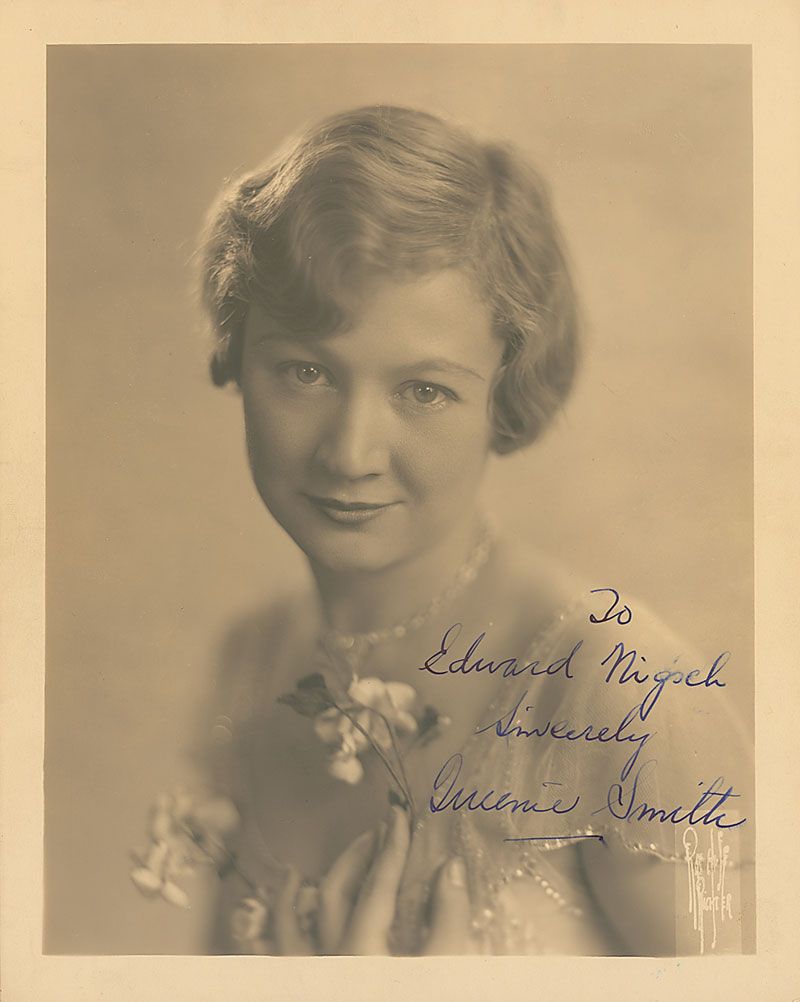 To
Edward Nigsch
Sincerely
Queenie Smith
RICHTER